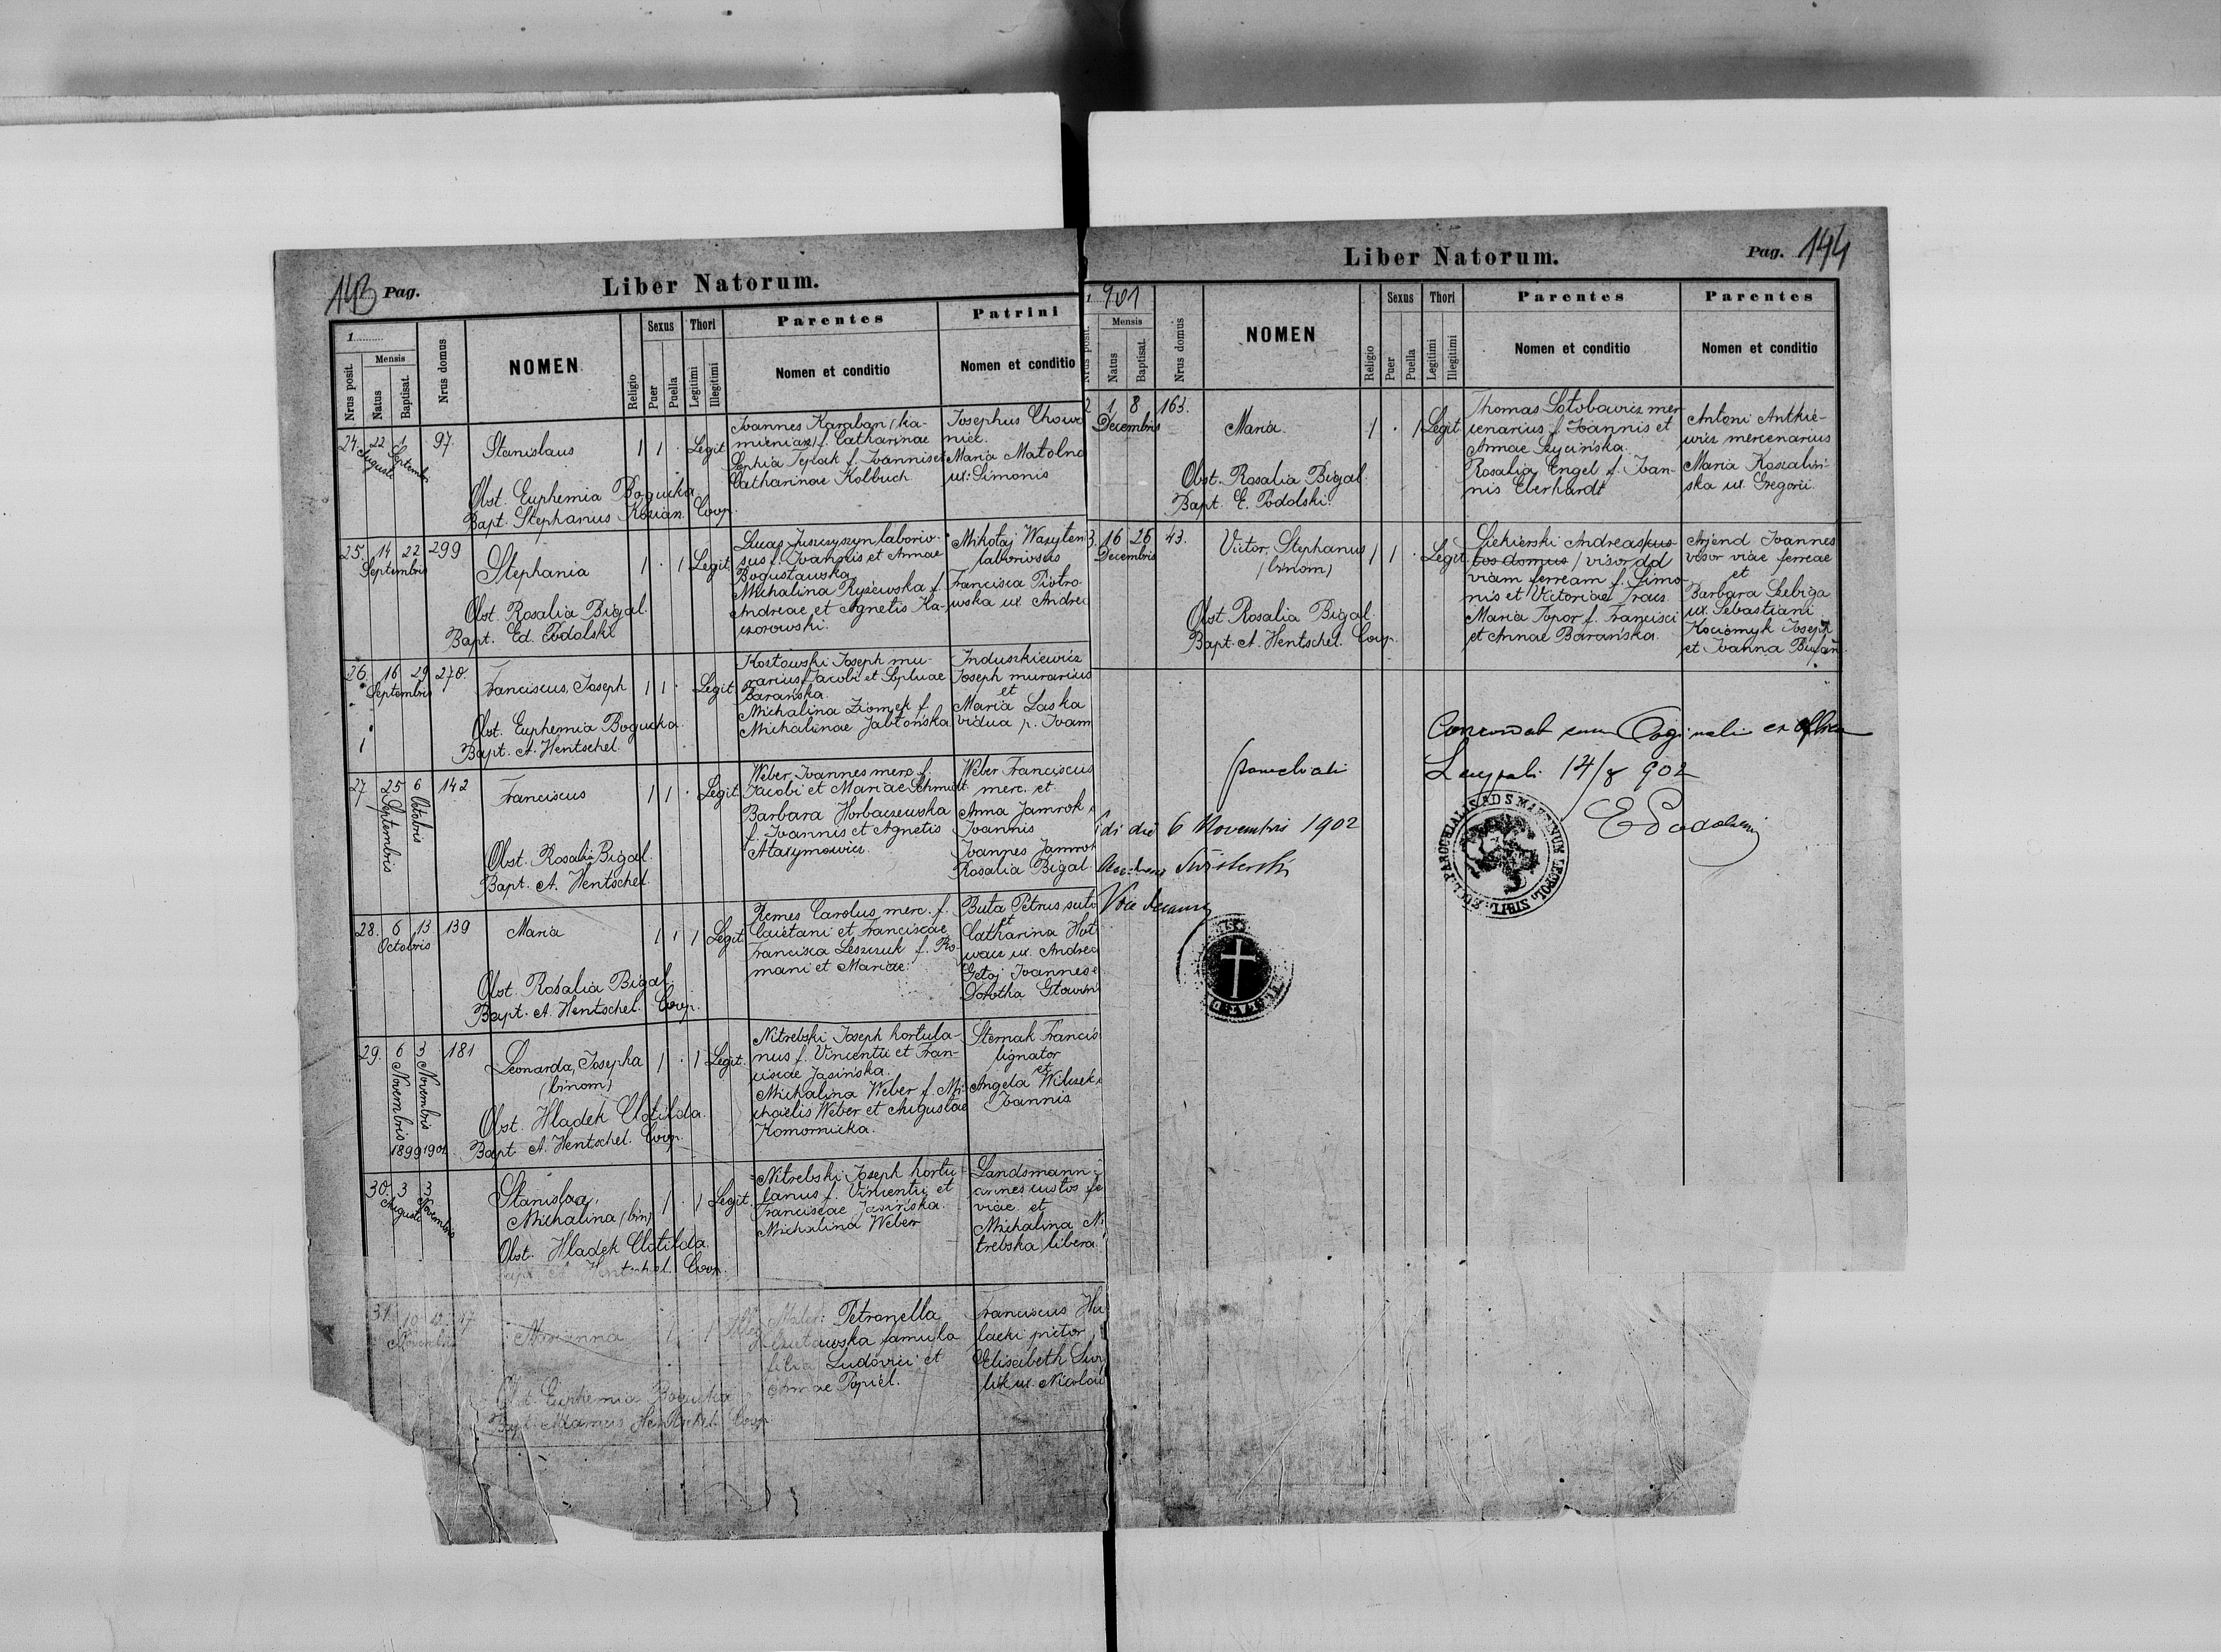 143 Pag.
Liber Natorum.
1
Nrus posit.
Mensis
Natus
Baptisat.
Nrus domus
NOMEN
Religio
Sexus
Puer
Puella
Thori
Legitimi
Illegitimi
Parentes
Nomen et conditio
Patrini
Nomen et conditio
24. 22 1 97.
Augusti Septembris
Stanislaus
1 1 · Legit.
Obst. Euphemia Bogucka
Bapt. Stephanus Kozian. Coop.
Joannes Karaban (ka-
mieniarz) f. Catharinae
Sophia f. Joannis et
Catharinae Kolbuch.
Josephus
Maria
ux. Simonis
25. 14 22 299
Septembris
Stephania
1 · 1 Legit.
Obst. Rosalia Bigal.
Bapt. Ed. Podolski
Lucas Juszczyszyn laborio-
sus f. Joannis et Annae
Bogusławska
Michalina Ryżewska f.
Andreae et Agnetis Ka-
czorowski.
Mikołaj Wasylen
laboriosus
Francisca Piotro-
wska ux. Andrea
26. 16 29 270.
Septembris
Franciscus, Joseph
1 1 · Legit
Obst. Euphemia Bogucka.
1
Bapt. A. Hentschel
Kozłowski Joseph mu-
rarius f. Jacobi et
Barańska.
Michalina Ziomek f.
Michalinae Jabłońska
Induszkiewicz
Joseph murarius
et
Maria Laska
vidua p. Joann
27. 25 6 142
Septembris Octobris
Franciscus
1 1 · Legit.
Obst. Rosalia Bigal.
Bapt. A. Hentschel.
Weber Joannes merc. f.
Jacobi et Mariae Schmidt.
Barbara Horbaczewska
f. Joannis et Agnetis
Atazymowicz.
Weber Franciscus
merc. et
Anna Jamrok
Joannis
Joannes Jamrok
Rosalia Bigal.
28. 6 13 139
Octobris
Maria
1 1 1 Legit.
Obst. Rosalia Bigal.
Bapt. A. Hentschel. Coop.
Remes Carolus merc. f.
Caietani et Franciscae
Francisca Leszczuk f. Ro-
mani et Mariae.
Buta Petrus suto
et
Catharina Hot
wacz ux. Andrea
Joannes e
Dorotha
29. 6 3 181
Novembris Novembris
Leonarda, Josepha
(binom)
1 · 1 Legit.
Obst. Hladek Clotilda.
1899 1901
Bapt A. Hentschel. Coop.
Nitrebski Joseph hortula-
nus f. Vincentii et Fran-
ciscae Jasińska.
Michalina Weber f. Mi-
chaelis Weber et Augustae
Komornicka.
Sternak Francis
lignator
et
Angela Wilczek
Joannis
30. 3 3
Augusti Novembris
Stanislaa,
Michalina (bin)
1 · 1 Legit.
Obst. Hladek Clotilda.
Bapt. A. Hentschel. Coop.
Nitrebski Joseph hortu-
lanus f. Vincentii et
Franciscae Jasińska.
Michalina Weber
Landsmann
annes custos fe
viae et
Michalina Ni
trebska libera.
31. 10
Novembris
Marianna
1 · 1 Illeg.
Obst. Euphemia Bogucka
Bapt. Adamus Hentschel. Coop.
Mater: Petronella
famula
filia Ludovici et
Annae Popiel.
Franciscus Hu
lacki pictor
Elisabeth Sur
ux. Nicolai
Liber Natorum.
Pag. 144
1 901
Nrus posit.
Mensis
Natus
Baptisat.
Nrus domus
NOMEN
Religio
Sexus
Puer
Puella
Thori
Legitimi
Illegitimi
Parentes
Nomen et conditio
Parentes
Nomen et conditio
2 1 8 163.
Decembris
Maria.
1 · 1 Legit
Obst. Rosalia Bigal.
Bapt. E. Podolski.
Thomas Sołobowicz mer-
cenarius f. Joannis et
Annae Szycińska.
Rosalia Engel f. Joan-
nis Eberhardt
Antoni Antkie-
wicz mercenarius
Maria Koszaliń-
ska ux. Gregorii.
3. 16 26 43.
Decembris
Victor, Stephanus
(binom)
1 1 · Legit.
Obst. Rosalia Bigal.
Bapt. A. Hentschel. Coop.
Siekierski Andreas kus-
tos domus / visor ad
viam ferream f. Simo-
nis et Victoriae Tracz.
Maria Topor f. Francisci
et Annae Barańska.
Arjend Joannes
visor viae ferreae
et
Barbara Szebiga
ux. Sebastiani
Kociomyk Joseph
et Joanna
Concordat cum Originali ex offo
14/8 902
E Podolski
die 6 Novembris 1902
Vice decanus
SIGILL: ECCL: PAROCHIALIS AD S MARTINUM LEOPOL: